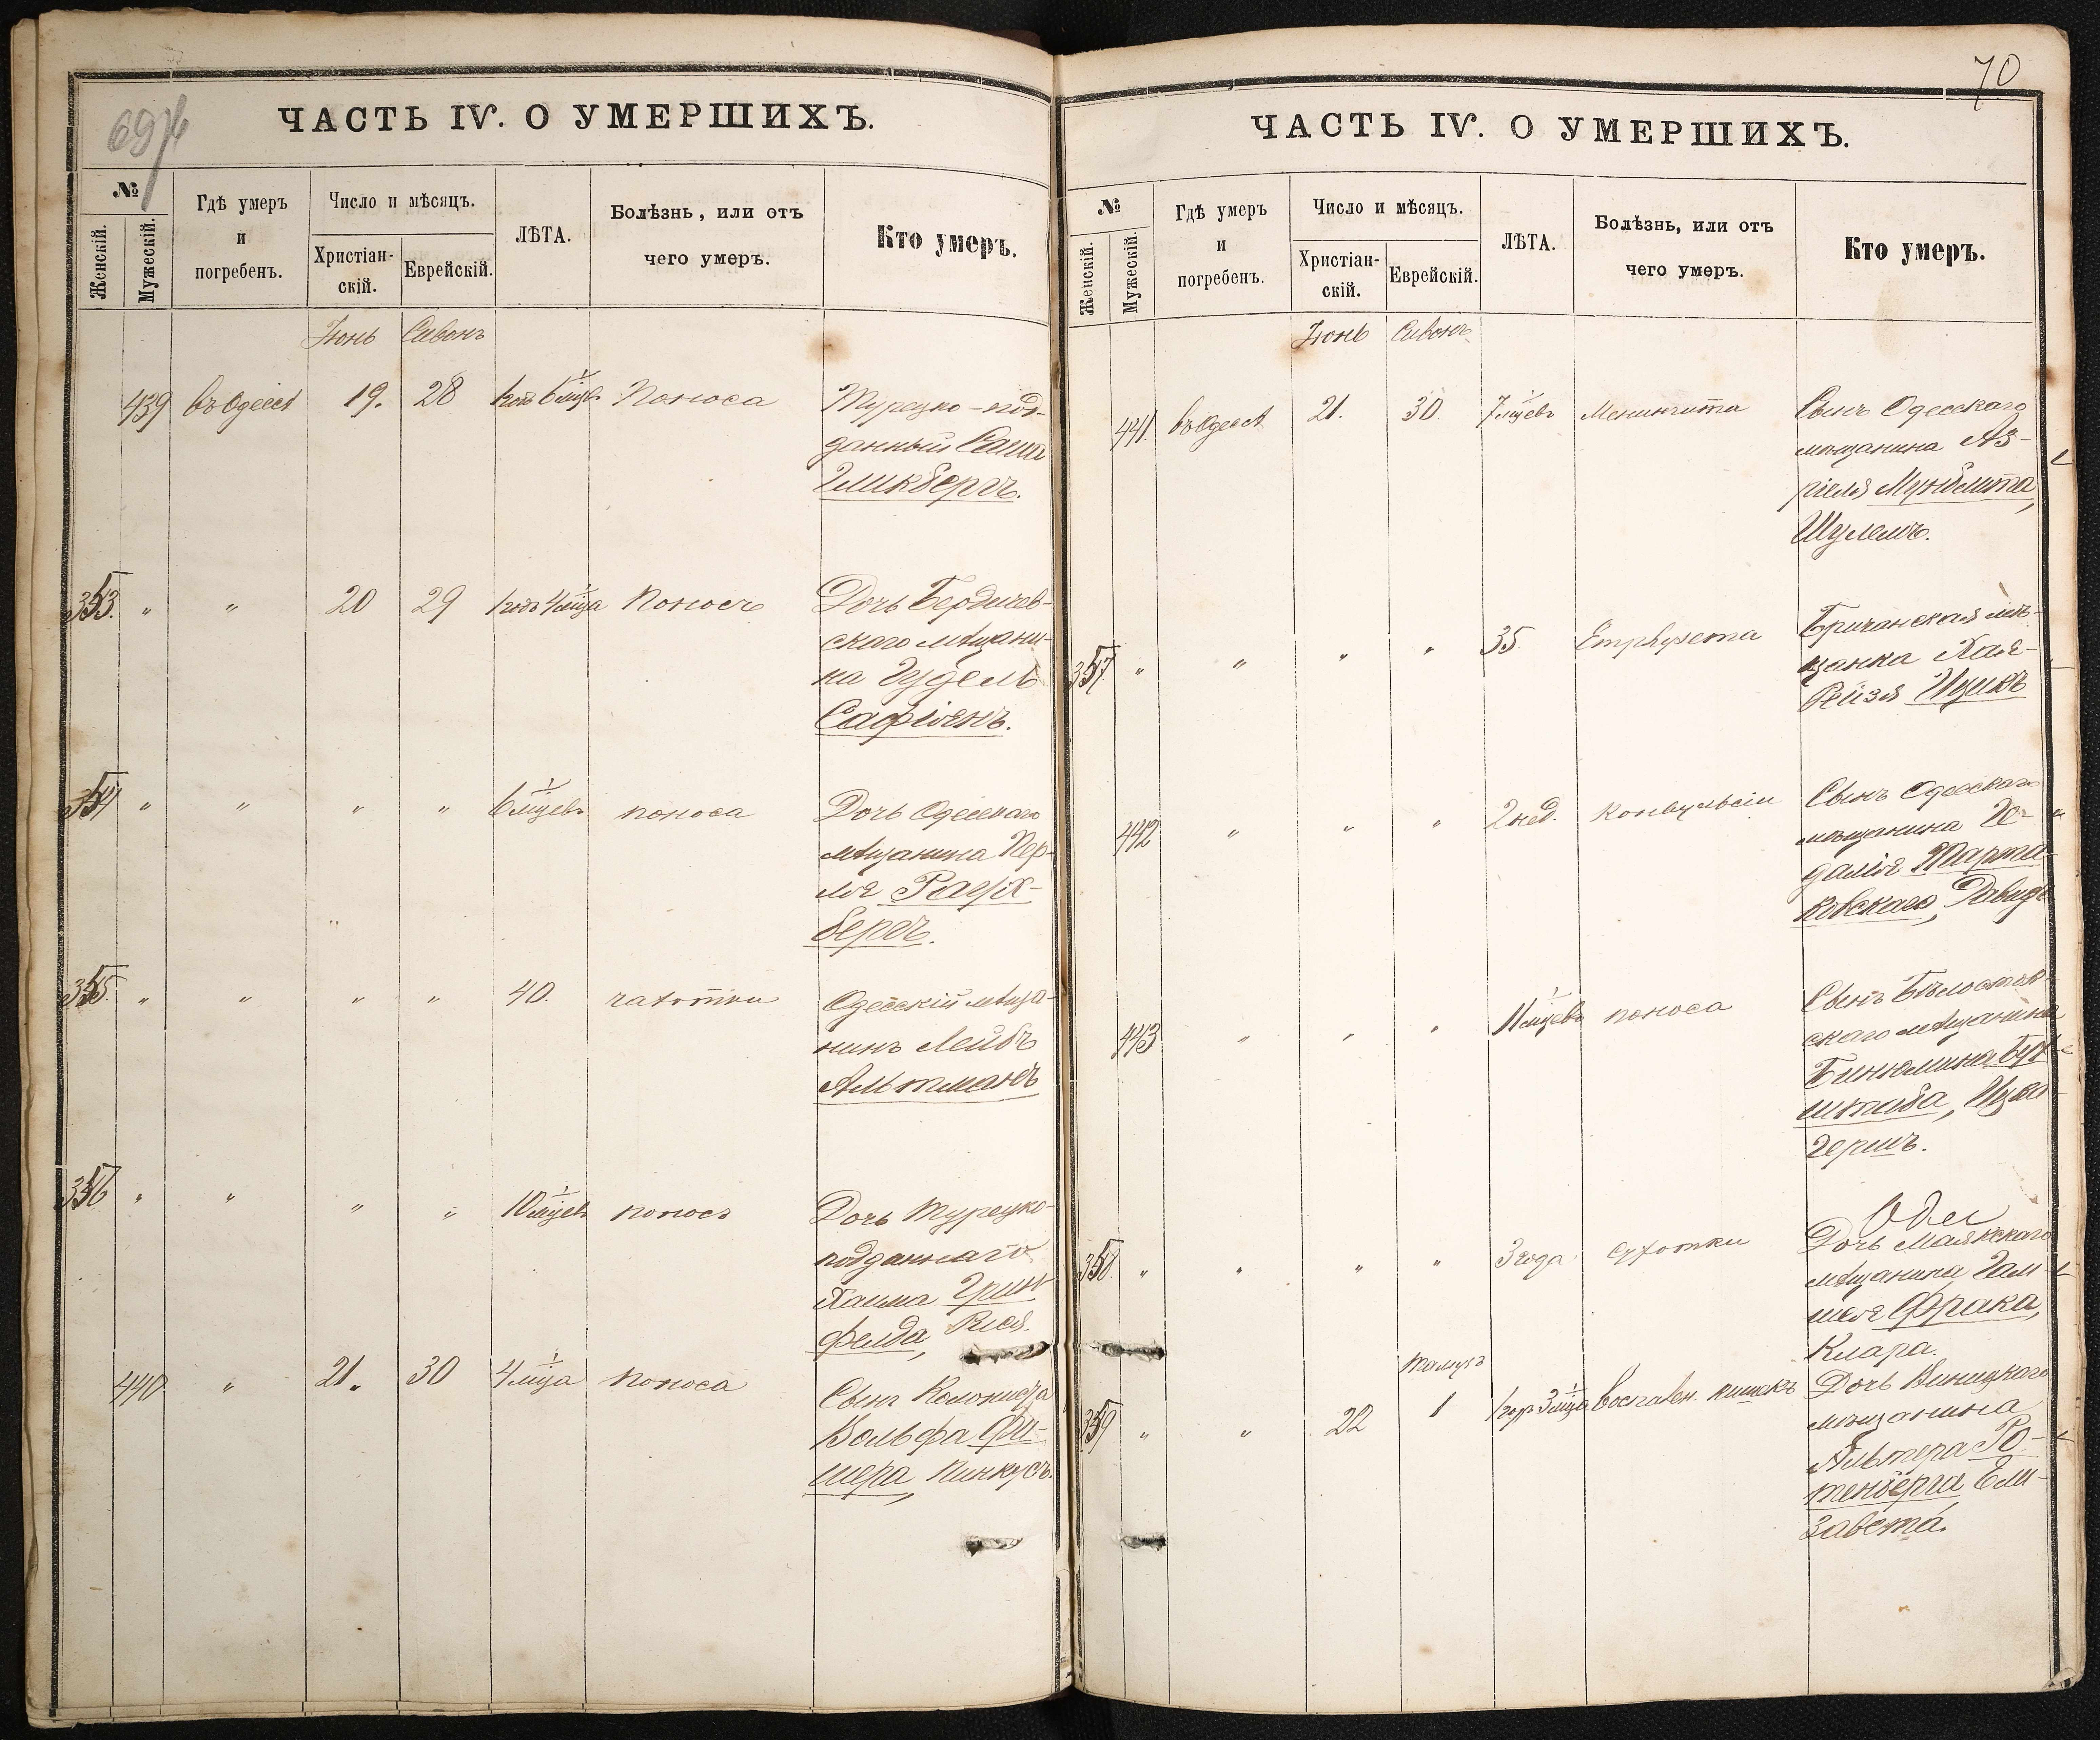 69
ЧАСТЬ IV. О УМЕРШИХЪ.
№
Женскій.
Мужескій.
Гдѣ умеръ
и
погребенъ.
Число и мѣсяцъ.
Христіан-
скій.
Еврейскій.
ЛѢТА.
Болѣзнь, или отъ
чего умеръ.
Кто умеръ.
Іюнь Сивонъ
439 въ Одессѣ 19. 28 1 годъ 6 мцев. Поноса Турецко-под-
данный
Гликбергъ.
353. " " 20 29 1 годъ 4 мца Поносъ Дочь Бердичев-
скаго мѣщани-
на Гудель
Сафіянъ.
354 " " " " 6 мцевъ поноса Дочь Одесскаго
мѣщанина Пер-
ля Райх-
бергъ.
355. " " " " 40. чахотки Одесскій мѣща-
нинъ Лейбъ
Альтманъ
356 " " " " 10 мцевъ поносъ Дочь Турецко-
подданнаго
Хаима Грин-
фелда,
440 " 21. 30 4 мца поноса Сынъ Колониста
Вольфа Фи-
шера, Пинкусъ.
70
ЧАСТЬ IV. О УМЕРШИХЪ.
№
Женскій.
Мужескій.
Гдѣ умеръ
и
погребенъ.
Число и мѣсяцъ.
Христіан-
скій.
Еврейскій.
ЛѢТА.
Болѣзнь, или отъ
чего умеръ.
Кто умеръ.
Іюнь Сивонъ
441. въ Одессѣ 21. 30. 7 мцевъ Менингита Сынъ Одесскаго
мѣщанина Аз-
ріеля Мунблита,
Шулемъ.
357 " " " " 35. Emphysema Бричанская мѣ-
щанка Хая-
Рейзя Ицикъ
442 " " " 2 нед. Конвульсіи Сынъ Одесскаго
мѣщанина Ге-
далія Тарта-
ковскаго, Давидъ
443 " " " 11 мцевъ поноса Сынъ Бѣлосток-
скаго мѣщанина
Бинюмина
штаба, Ицко
Гершъ.
358. " " " " 3 года Сухотки Дочь Маякскаго
мѣщанина
Фрака,
Клара.
Тамузъ
359 " " 22 1 1 годъ 3 мца Воспален. кишекъ Дочь Виницкаго
мѣщанина
Альтера Ро-
тенберга Ели-
завета.